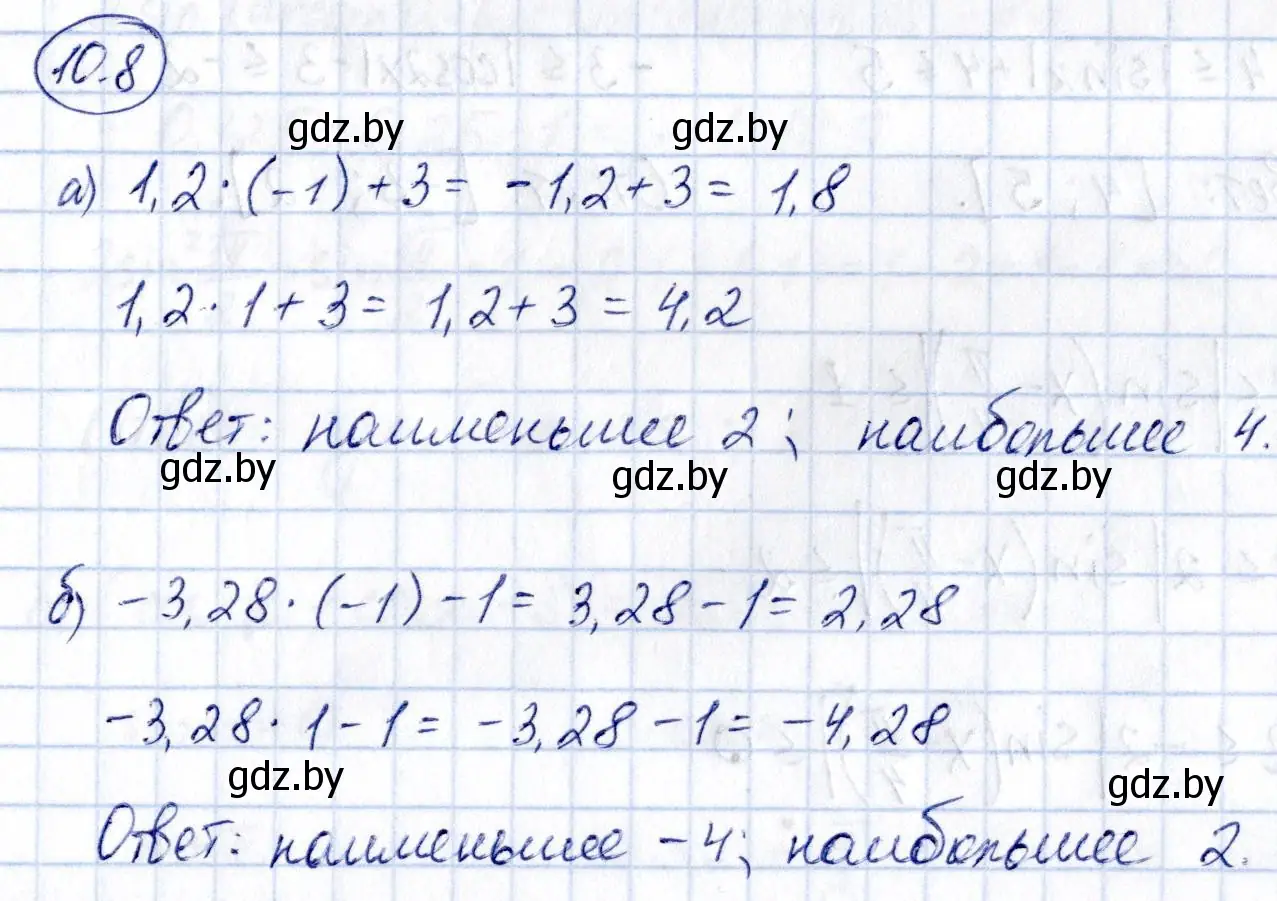 10.8
gdz.by gdz.by
а) 1,2·(-1)+3= -1,2+3= 1,8
1,2·1+3= 1,2+3=4,2
Ответ: наименьшее 2; наибольшее 4.
gdz.by gdz.by gdz.by
б) -3,28·(-1)-1= 3,28-1= 2,28
-3,28·1-1= -3,28-1= -4,28
gdz.by gdz.by
Ответ: наименьшее -4; наибольшее 2.